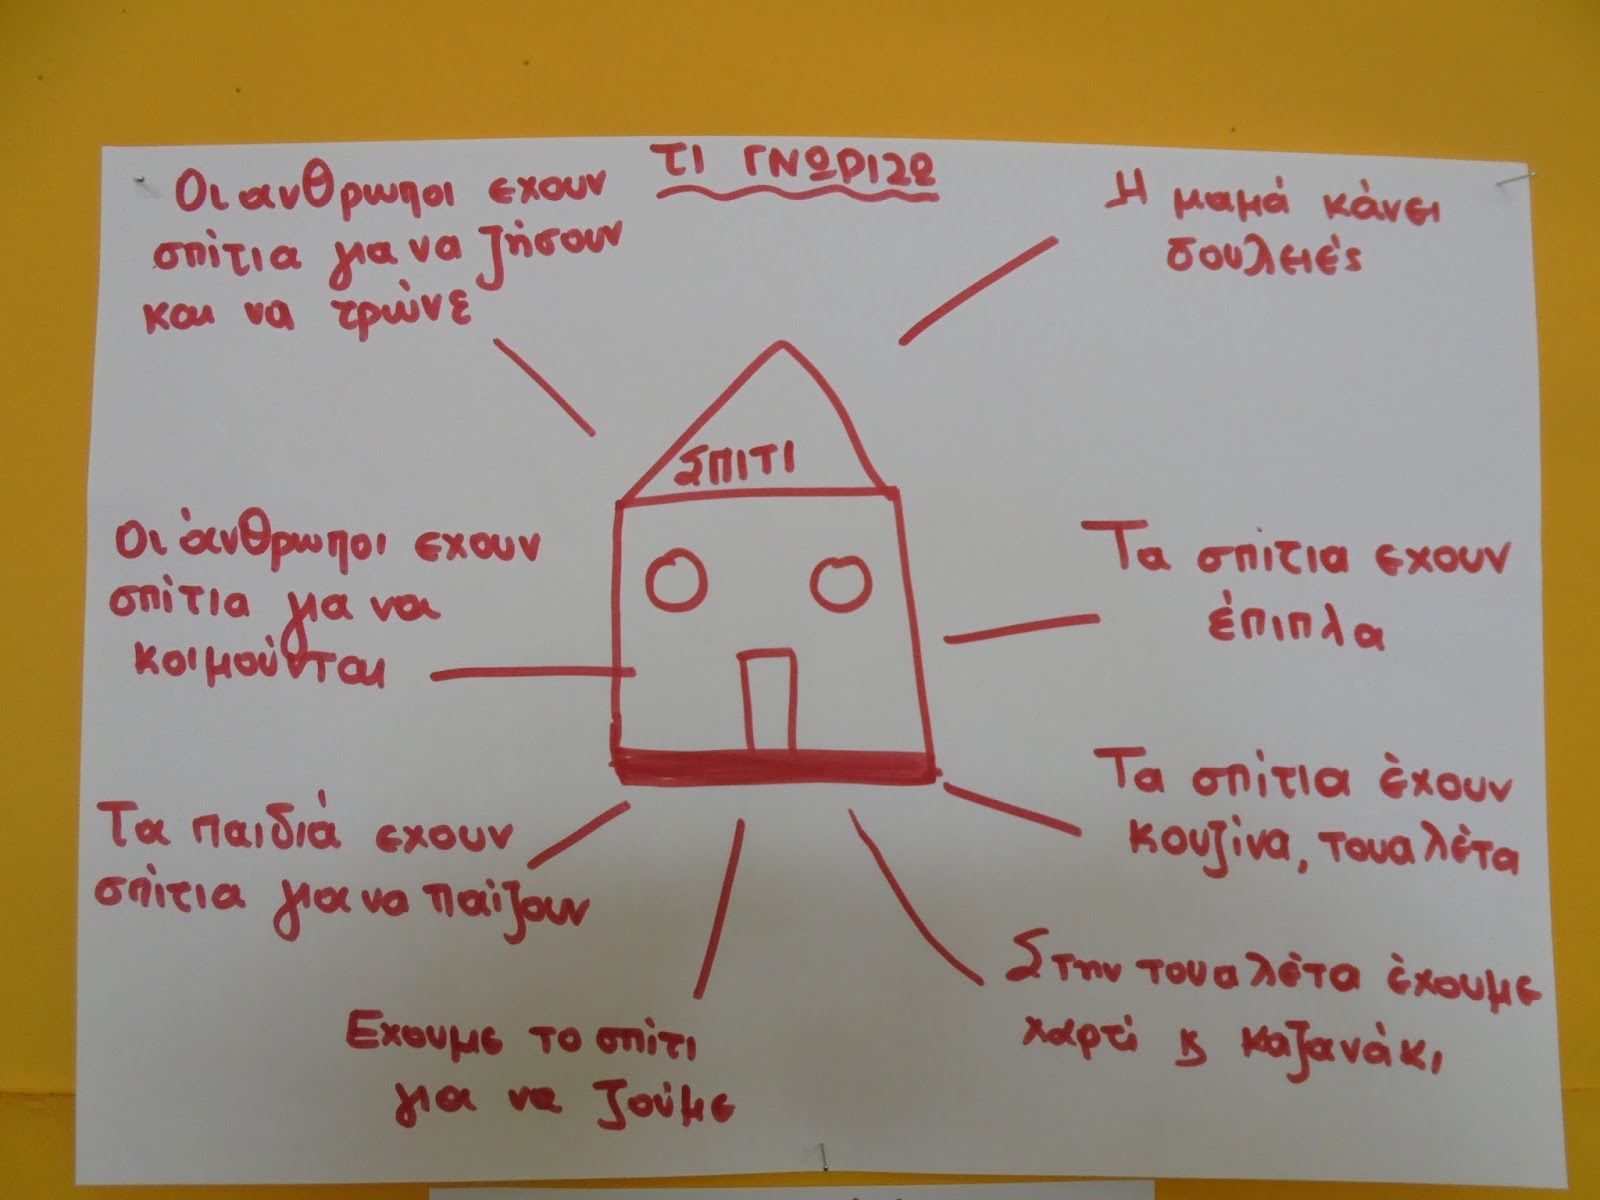 ΤΙ ΓΝΩΡΙΖΩ
Οι ανθρωποι εχουν
σπίτια για να ζήσουν
και να τρώνε
Η μαμά κάνει
δουλειές
ΣΠΙΤΙ
Οι άνθρωποι εχουν
σπίτια για να
κοιμούνται
Τα σπίτια εχουν
έπιπλα
Τα παιδιά εχουν
σπίτια για να παίζουν
Τα σπίτια έχουν
κουζίνα, τουαλέτα
Εχουμε το σπίτι
για να ζούμε
Στην τουαλέτα έχουμε
χαρτί κ καζανάκι